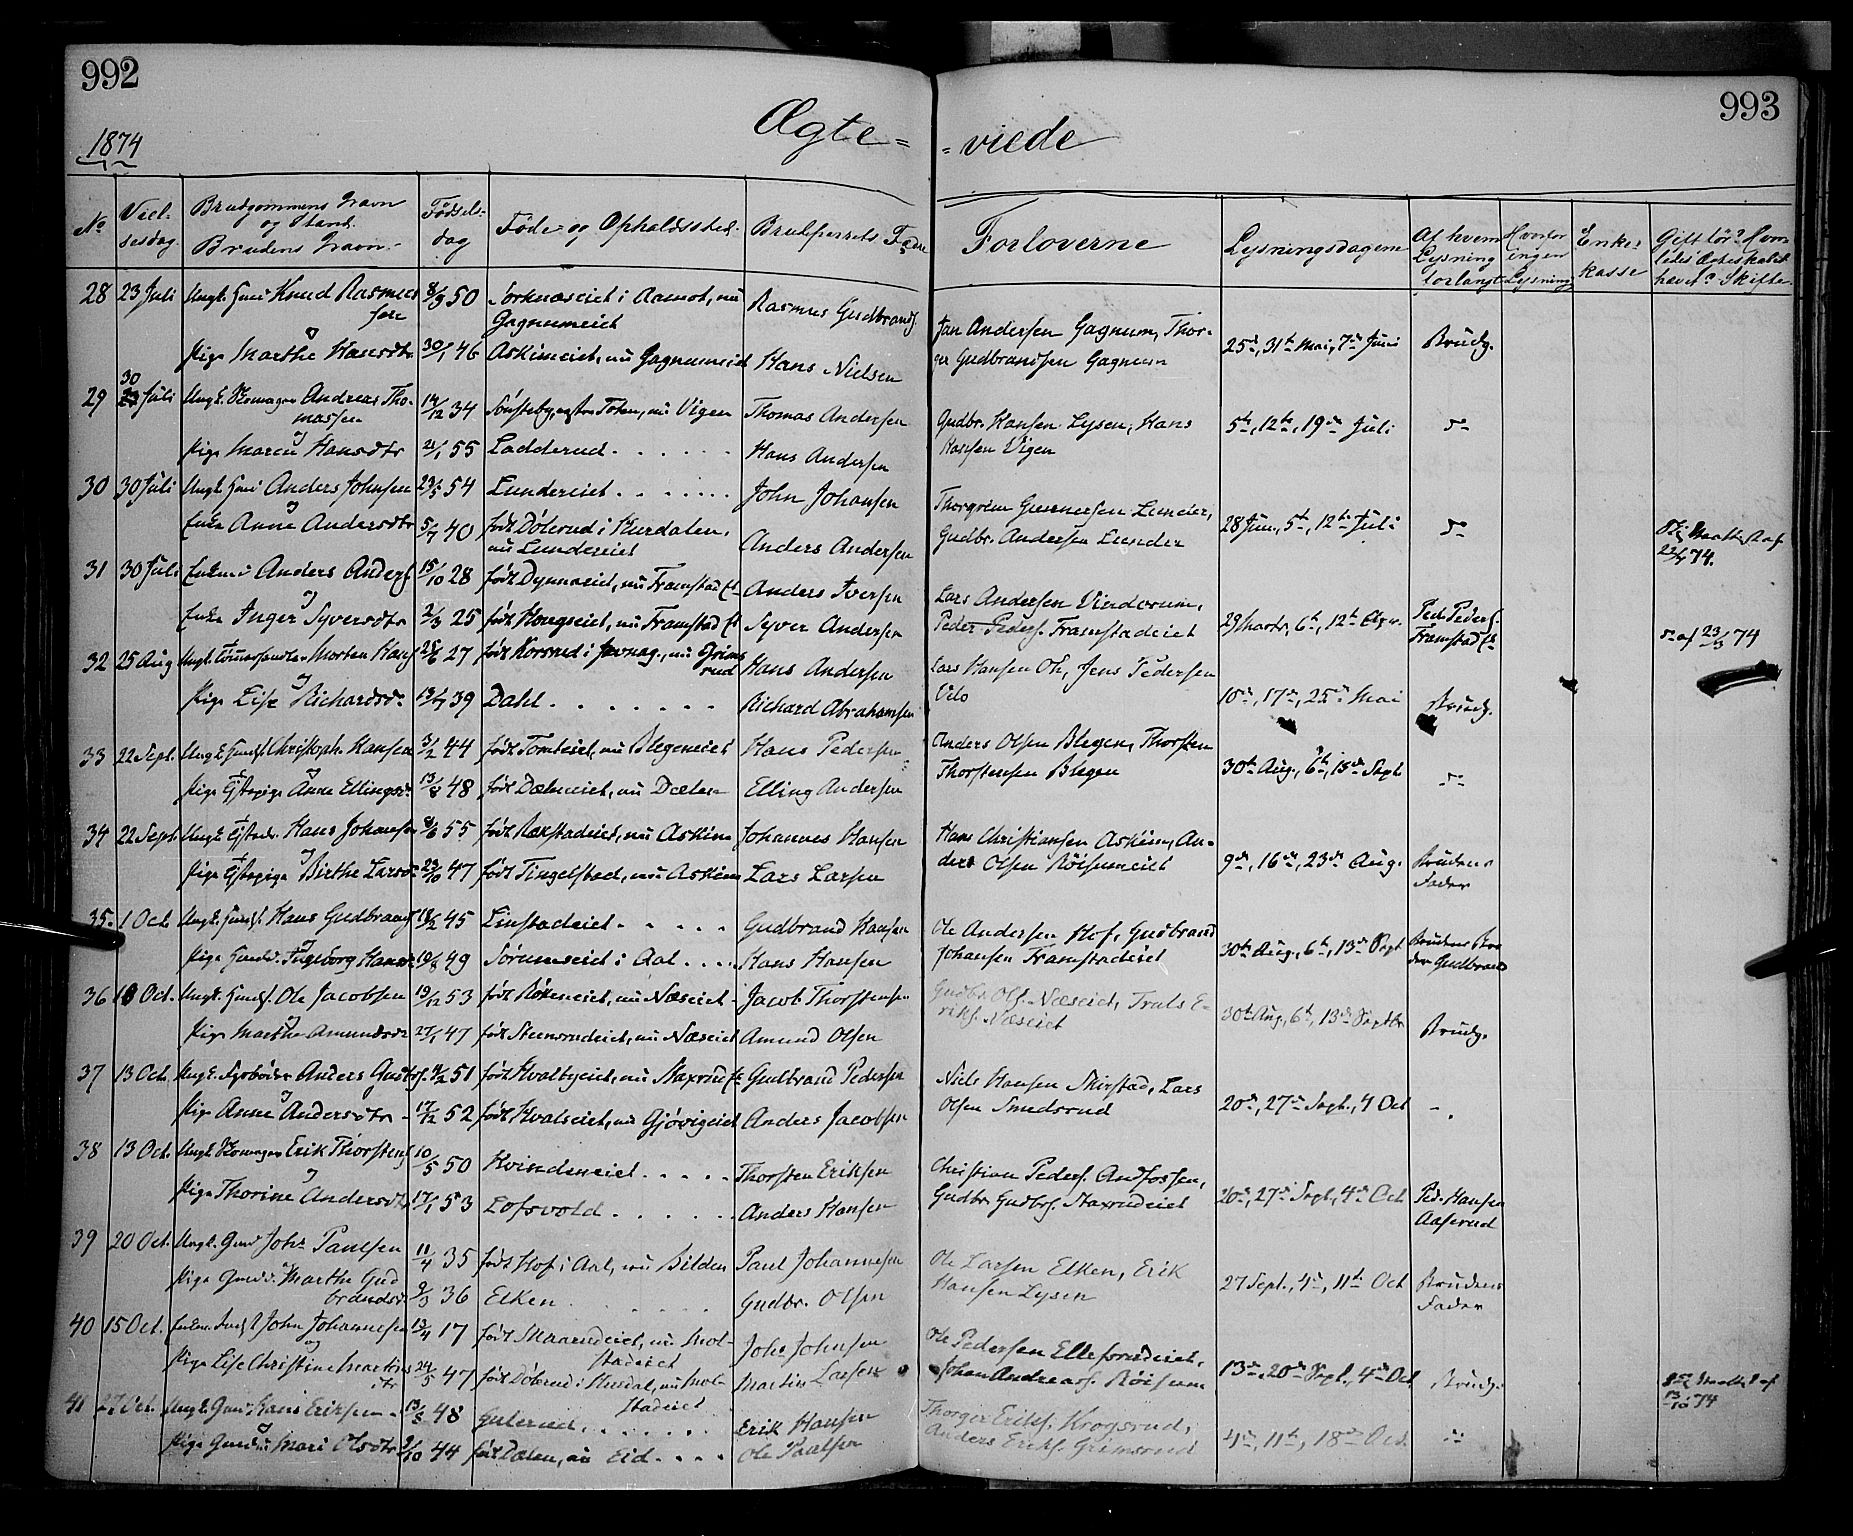 992
993
Ægte= =viede
1874
No
Viel-
sesdag
Brudgommens Navn
og Stand.
Brudens Navn.
Fødsels-
dag
Føde og Opholdssted.
Brudeparrets Fædre
Forloverne
Lysningsdagene
Af hvem
Lysning
forlangt
Hvorfor
ingen
Lysning
Enke-
kasse
Gift før? Hvor-
ledes
hævet? Skifte.
28 23 Juli Ungk. Knud Rasmus 8/9 50 i Aamot, nu Rasmus Gudbrands.
sen Gagnumeiet
og
Jan Andersen Gagnum, Thor-
ger Gudbrandsen Gagnum 25de, 31te Mai, 7de Juni Brudg.
Pige Marthe Hansdtr 30/1 46 Askimeiet, nu Gagnumeiet Hans Nielsen
30
29 Juli Ungk. Andreas Tho- 14/12 34 Toten, nu Vigen Thomas Andersen
massen
og
Gudbr. Hansen Lysen, Hans
Hansen Vigen 5te, 12te, 19de Juli do
Pige Maren Hansdtr 21/1 55 Ladderud Hans Andersen
30 30 Juli Ungk. Anders Johnsen 23/5 54 Lundereiet John Johansen
og
Thorgrim Gunnersen
Gudbr. Andersen Lunder 28 Juni, 5te, 12te Juli do
Enke Anne Andersdtr 5/7 40 født Dølerud i Hurdalen,
nu Lundereiet Anders Andersen
74.
31 30 Juli Enkem. Anders Anders. 15/10 28 født Dynnaeiet, nu Framstad Et. Anders Iversen
og
Lars Andersen
Peder Peders. Framstadeiet 29 Marts, 6te, 12te Ped. Peders.
Framstad Et.
Enke Inger Syversdtr 2/3 25 født Hougseiet, nu Framstad Et. Syver Andersen
do af 23/3 74
32 25 Aug Ungk. Morten Hans. 25/6 27 født Korsrud i Jevnag., nu Grims-
rud Hans Andersen
og
Lars Hansen Oh, Jens Pedersen
Velo 10de, 17de, 25de Mai Brudg.
Pige Lise Richardsd. 39 Dahl Richard Abrahamsen
33 22 Sept. Ungk. Christoph. Hansen 3/2 44 født Tomteiet, nu Blegeneiet Hans Pedersen
og
Anders Olsen Blegen, Thorsten
Thorstensen Blegen 30te Aug., 6te, 13de Sept do
Pige Anne Ellingsd. 13/8 48 født Dæleneiet, nu Dælen Elling Andersen
34 22 Sept. Ungk. Hans Johanse 8/6 55 født Raxstadeiet, nu Askim Johannes Hansen
og
Hans Christiansen Askim, An-
ders Olsen Røisumeiet 9de, 16de, 23de Aug. Brudens
Fader
Pige Birthe Larsd. 23/10 47 født Tingelstad, nu Askim Lars Larsen
35. 1 Oct. Ungk. Hans Gudbrands. 18/2 45 Linstadeiet Gudbrand Hansen
og
Ole Andersen Hof, Gudbrand
Johansen Framstadeiet 30te Aug., 6te, 13de Sept Brudens Bro
der Gudbrand
Pige Ingeborg Hansd. 19/8 49 Sørumseiet i Aal Hans Hansen
36 Oct. Ungk. Ole Jacobsen 19/12 53 født nu Næseiet Jacob Thorstensen
og
Gudbr. Ols. Næseiet, Truls E-
riks. Næseiet 30te Aug., 6te, 13de Septbr Brudg.
Pige Marthe Amundsd. 27/1 47 født Steensrudeiet, nu Næseiet Amund Olsen
37 13 Oct. Ungk. Anders 51 født Hvalbyeiet, nu Naxrud Et. Gudbrand Pedersen
og
Niels Hansen Skirstad, Lars
Olsen Smedsrud 20de, 27de Sept., 4 Oct
Pige Anne Andersdtr 17/12 52 født Hvalseiet, nu Gjøvigeiet Anders Jacobsen
38 13 Oct. Ungk. Erik Thorstens. 10/5 50 Kvindeneiet Thorsten Eriksen
og
Christian Peders.
Gudbr. Gudbrs. Naxrudeiet 20de, 27de Sept., 4de Oct Ped. Hansen
Aaserud
Pige Thorine Andersdtr 17/1 53 Lofsvold Anders Hansen
39 20 Oct. Ungk. Johs. Paulsen 11/4 35 født Hof i Aal, nu Bilden Paul Johannesen
Ole Larsen Elken, Erik
Hansen Lysen 27 Sept., 4de, 11te Oct Brudens
Fader
Pige Marthe Gud
brandsd. 9/3 36 Elken Gudbr. Olsen
40 15 Oct. John Johannesen 13/4 17 født Maarudeiet, nu Mol-
stadeiet Johs. Johnsen
og
Ole Pedersen
Johan Andreas. Røisum 13de, 20de Sept., 4de Oct Brudg.
Pige Lise Christine Martins
dtr 24/5 47 født Dølerud i Hurdal, nu Mol-
stadeiet Martin Larsen
13/10 74
41 27 Oct. Ungk. Hans Eriksen 13/8 48 Gulerud Erik Hansen
og
Thorger Eriks. Krogsrud,
Anders Eriks. Grimsrud 4de, 11te, 18de Oct.
Pige Mari Olsdtr 9/10 44 født Dælen, nu Eid Ole Paulsen